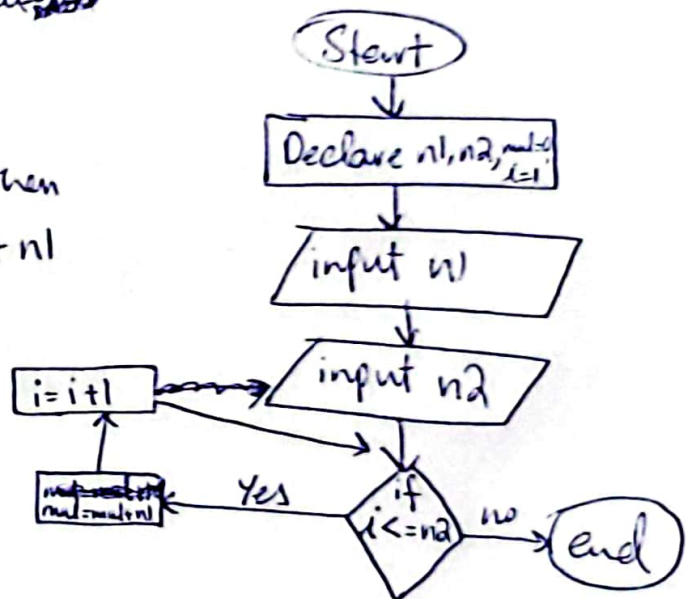 Start
Declare n1, n2, mul=0
i=1
hen
n1
input n1
input n2
i=i+1
mul=mul+n1
Yes
if
i<=n2
no
end